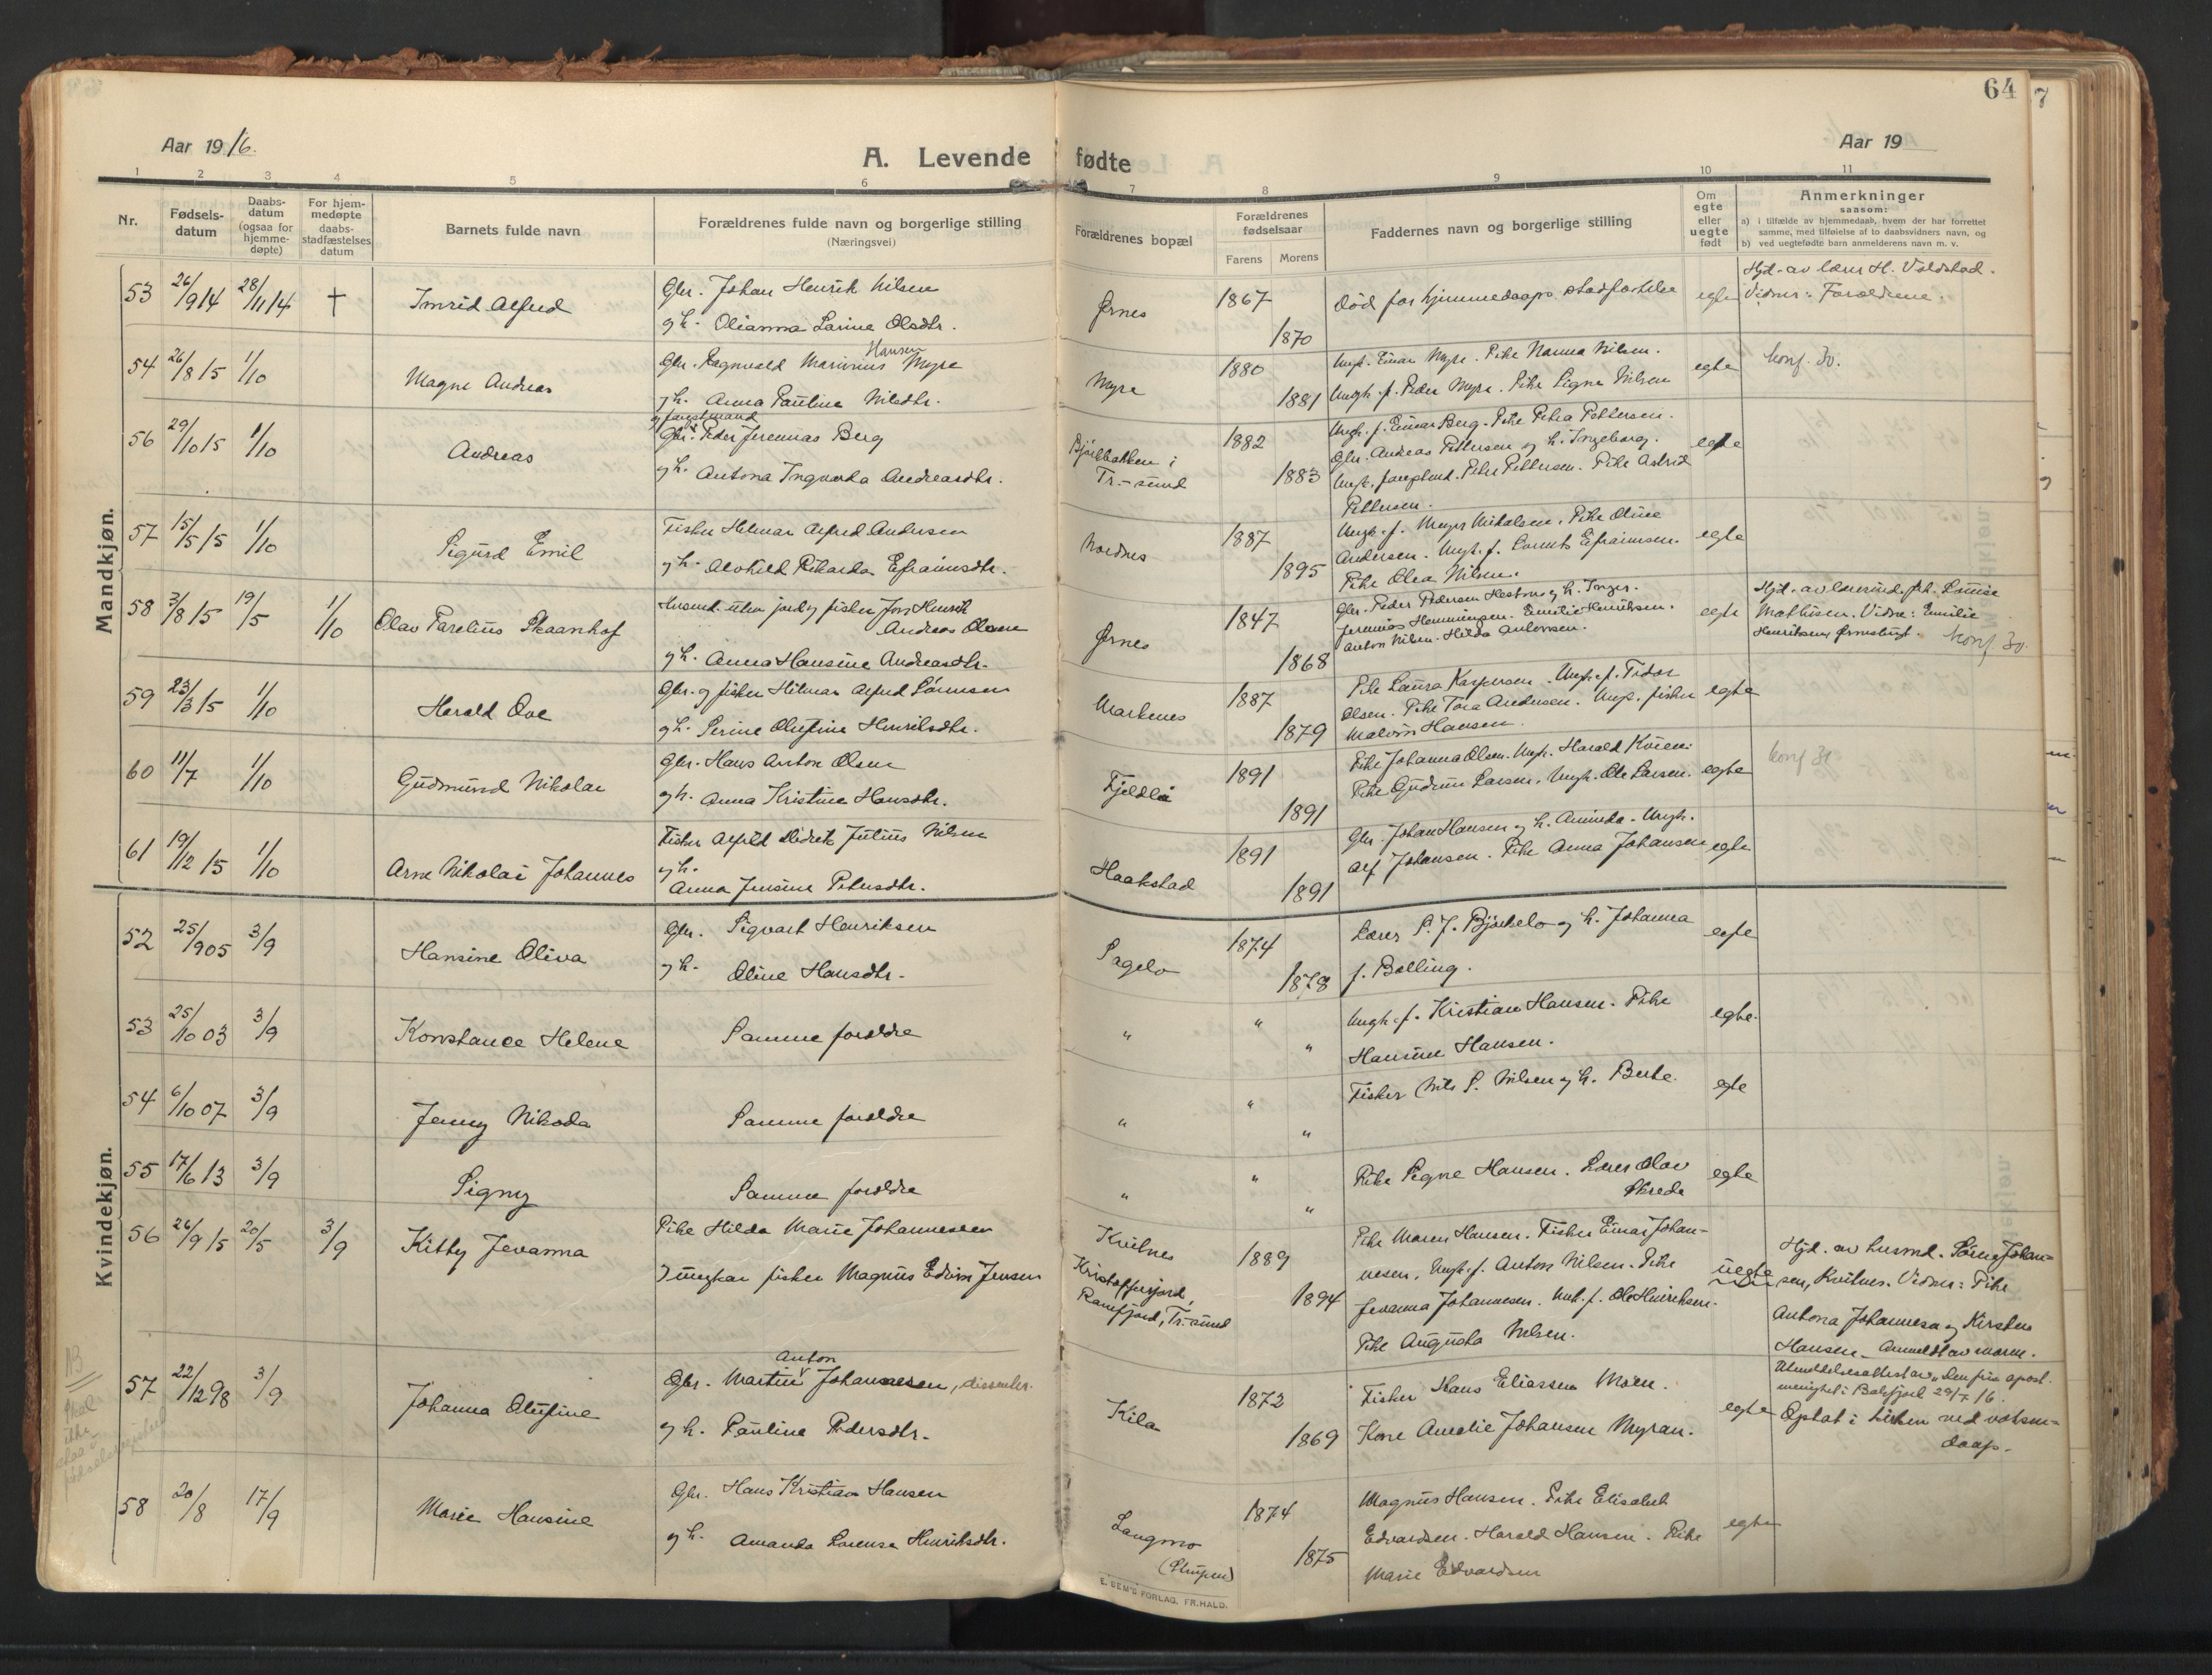 64
7
Aar 1916.
A. Levende
fødte
Aar 19
1 2 3 4 5 6 7 8 9 10 11
Nr.
Fødsels-
datum
Daabs-
datum
(ogsaa for
hjemme-
døpte)
For hjem-
medøpte
daabs-
stadfæstelses
datum
Barnets fulde navn
Forældrenes fulde navn og borgerlige stilling
(Næringsvei)
Forældrenes bopæl
Forældrenes
fødselsaar
Farens Morens
Faddernes navn og borgerlige stilling
Om
egte
eller
uegte
født
Anmerkninger
saasom:
a) i tilfælde av hjemmedaab, hvem der har forrettet
samme, med tilføielse af to daabsvidners navn, og
b) ved uegtefødte barn anmelderens navn m. v.
Mandkjøn.
53 26/9 14 28/11 14 † Imrid Alfred
Gbr. Johan Henrik Nilsen
og h. Olianna Larine Olsdtr.
Ørnes 1867 1870
Død før hjemmedaaps stadfæstelse
egte
Hjd. av lærer H. Voldstad.
Vidner: Forældrene.
54 26/8 15 1/10 Magne Andreas
Hansen
Gbr. Ragnvald Marinius Myre
og h. Anna Pauline Nilsdtr.
Myre 1880 1881
Ungk. Einar Myre. Pike Nanna Nilsen.
Ungk. f. Peder Myre. Pike Signe Nilsen
egte
konf. 30.
56 29/10 15 1/10 Andreas
Gbr. Peder Jeremias Berg
og h. Antona Ingvarda Andreasdtr.
Bjørkbakken i
Tr.-sund
1882 1883
Ungk. f. Einar Berg. Pike Petra Pettersen.
Gbr. Andreas Pettersen og h. Ingeborg.
Pettersen. Pike Astrid
Pettersen.
egte
57 15/5 15 1/10 Sigurd Emil
Fisker Hilmar Alfred Andersen
og h. Alvhild Rikarda Efraimsdtr.
Nordnes 1887 1895
Ungk. f. Meyer Mikalsen. Pike Oline
Andersen. Ungk. f. Lorents Efraimsen.
Pike Olea Nilsen.
egte
58 3/8 15 19/5 1/10 Olav Parelius Skaanhof
Husmd. uten jord og fisker Jens Henrik
Andreas Olsen
og h. Anna Hansine Andreasdtr.
Ørnes 1847 1868
Gbr. Peder Pedersen Hestnes og h. Inger.
Jeremias Henningsen. Emilie Henriksen.
Anton Nilsen. Hilda Antonsen.
egte
Hjd. av lærerinde frk. Louise
Mathisen. Vidne: Emilie
Henriksen, Ørnesbugt. konf. 30.
59 23/3 15 1/10 Harald Ove
Gbr. og fisker Hilmar Alfred Sørensen
og h. Serine Olufine Henriksdtr.
Markenes 1887 1879
Pike Laura Kaspersen. Ungk. f. Tidor
Olsen. Pike Tora Andersen. Ungk. fisker
Malvin Hansen.
egte
60 11/7 1/10 Gudmund Nikolai
Gbr. Hans Anton Olsen
og h. Anna Kristine Hansdtr.
Fjeldli 1891 1891
Pike Johanna Olsen. Ungk. Harald Kvien.
Pike Gudrun Larsen. Ungk. Ole Larsen.
egte
konf 31
61 19/12 15 1/10 Arne Nikolai Johannes
Fisker Alfred Didrik Julius Nilsen
og h.
Anna Jensine Petersdtr.
Haakstad 1891 1891
Gbr. Johan Hansen og h. Aminda. Ungk.
Alf Johansen. Pike Anna Johansen
egte
Kvindekjøn.
52 25/9 05 3/9 Hansine Oliva
Gbr. Sigvart Henriksen
og h. Oline Hansdtr.
Sagelv 1874 1878
Lærer P. J. Bjørkelo og h. Johanna
f. Balling.
egte
53 25/10 03 3/9 Konstance Helene
Samme forældre
" " "
Ungk. f. Kristian Hansen. Pike
Hansine Hansen.
egte.
54 6/10 07 3/9 Jenny Nikoda
Samme forældre
" " "
Fisker Nils P. Nilsen og h. Berte.
egte
55 17/6 13 3/9 Signy
Samme forældre
" " "
Pike Signe Hansen. Lærer Olav
Skrede
egte
56 26/9 15 20/5 3/9 Kitty Jevanna
Pike Hilda Marie Johannessen
Ungkar fisker Magnus Edvin Jensen
Kvitnes
Kristoffersjord,
Ramfjord, Tr.-sund
1889 1894
Pike Maren Hansen. Fisker Einar Johan-
nesen, Ungk. f. Anton Nilsen. Pike
Jevanna Johannesen. Unk. f. Ole Henriksen.
Pike Augusta Nilsen.
uegte
Hjd. av husmd. Søren Johan-
sen, Kvitnes. Vidner: Pike
Antona Johannesen og Kirsten
Hansen. Anmeldt av moren.
57 22/12 98 3/9 Johanna Olufine
Anton
Gbr. Martin Johannesen, dissenter.
og h. Pauline Pedersdtr.
Kila 1872 1869
Fisker Hans Eliassen Moen.
Kone Amalie Johansen Myran.
egte
Utmeldelsesattest av "Den frie apost.
menighet i Balsfjord 29/7 16.
Optat i kirken ved voksen-
daap.
NB
Skal
ikke
staa i
58 20/8 17/9 Marie Hansine
Gbr. Hans Kristian Hansen
og h. Amanda Lorense Henriksdtr.
Langmo
(Strupen)
1874 1875
Magnus Hansen. Pike Elisabet
Edvardsen. Harald Hansen. Pike
Marie Edvardsen
egte
E. SEM'S FORLAG, FR.HALD.